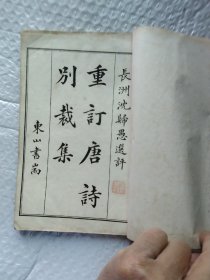 長洲沈歸愚選評
重訂唐詩
別裁集
東山書嵩